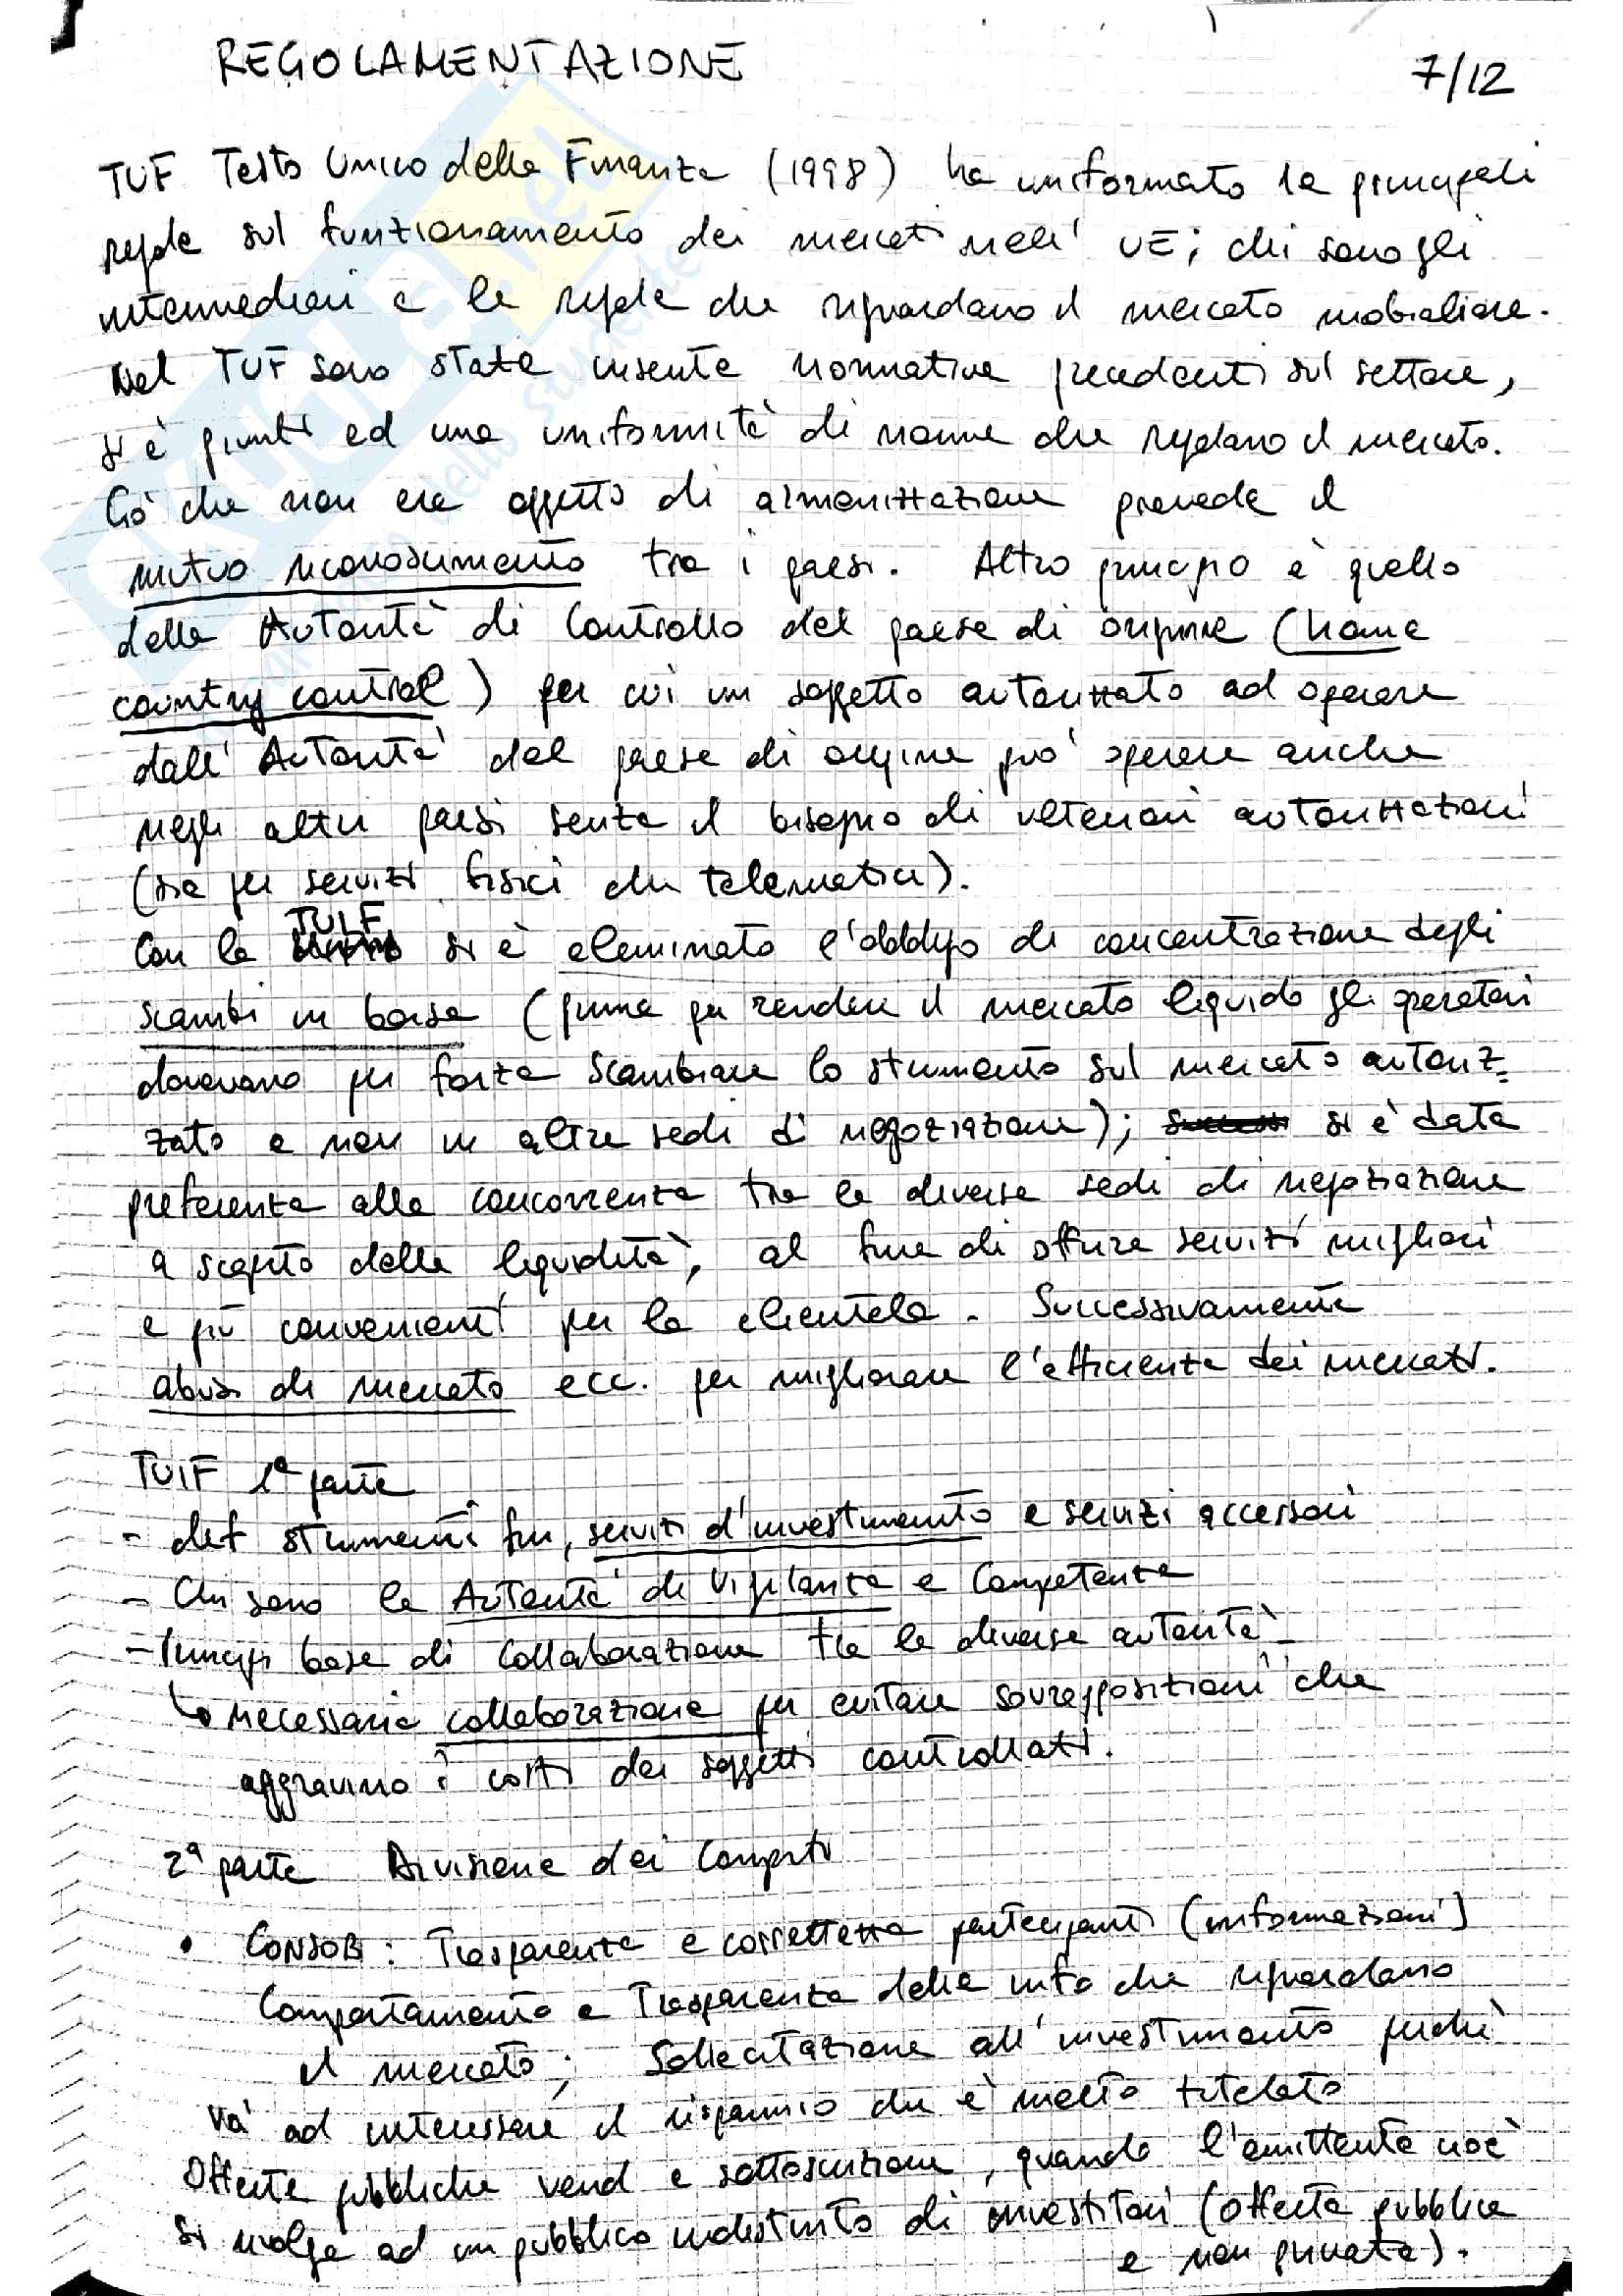 REGOLAMENTAZIONE 7/12
TUF Testo Unico della Finanza (1998) ha uniformato le principali
regole sul funzionamento dei mercati nell' UE; chi sono gli
intermediari e le regole che riguardano il mercato mobiliare.
Nel TUF sono state inserite normative precedenti sul settore,
si è giunti ad una uniformità di norme che regolano il mercato.
Ciò che non era oggetto di armonizzazione prevede il
mutuo riconoscimento tra i paesi. Altro principio è quello
delle Autorità di Controllo del paese di origine (home
country control) per cui un soggetto autorizzato ad operare
dall' Autorità del paese di origine può operare anche
negli altri paesi senza il bisogno di ulteriori autorizzazioni
(sia per servizi fisici che telematici).
Con la TUIF si è eliminato l'obbligo di concentrazione degli
scambi in borsa (prima per rendere il mercato liquido gli operatori
dovevano per forza scambiare lo strumento sul mercato autoriz-
zato e non in altre sedi di negoziazione); si è data
preferenza alla concorrenza tra le diverse sedi di negoziazione
a scapito della liquidità, al fine di offrire servizi migliori
e più convenienti per la clientela. Successivamente
abusi di mercato ecc. per migliorare l'efficienza dei mercati.
TUIF 1ª parte
- def strumenti fin, servizi d'investimento e servizi accessori
- Chi sono le Autorità di Vigilanza e Competenze
- Principi base di Collaborazione tra le diverse autorità
↳ necessaria collaborazione per evitare sovrapposizioni che
aggravino i costi dei soggetti controllati.
2ª parte Divisione dei Compiti
• CONSOB: Trasparenza e correttezza partecipanti (informazioni)
Comportamento e Trasparenza delle info che riguardano
il mercato; Sollecitazione all'investimento perché
va' ad interessare il risparmio che è molto tutelato
Offerte pubbliche vend e sottoscrizione, quando l'emittente cioè
si rivolge ad un pubblico indistinto di investitori (offerta pubblica
e non privata).